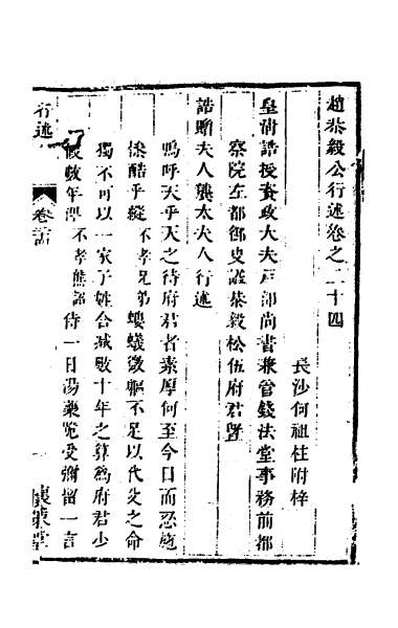 趙恭毅公行述卷之二十四
長沙何祖柱附梓
皇淸誥授資政大夫戸部尚書兼管錢法堂事務前都
察院左都御史諡恭毅松伍府君暨
誥贈夫人龔太夫人行述
嗚呼天乎天之待府君者素厚何至今日而忍施
慘酷乎縱不孝兄弟螻蟻微軀不足以代父之命
獨不可以一家子姓合減數十年之算爲府君少
假數年俾不孝熊詔侍一日湯藥跪受彌留一言
行述
卷二十四
一
懷策堂